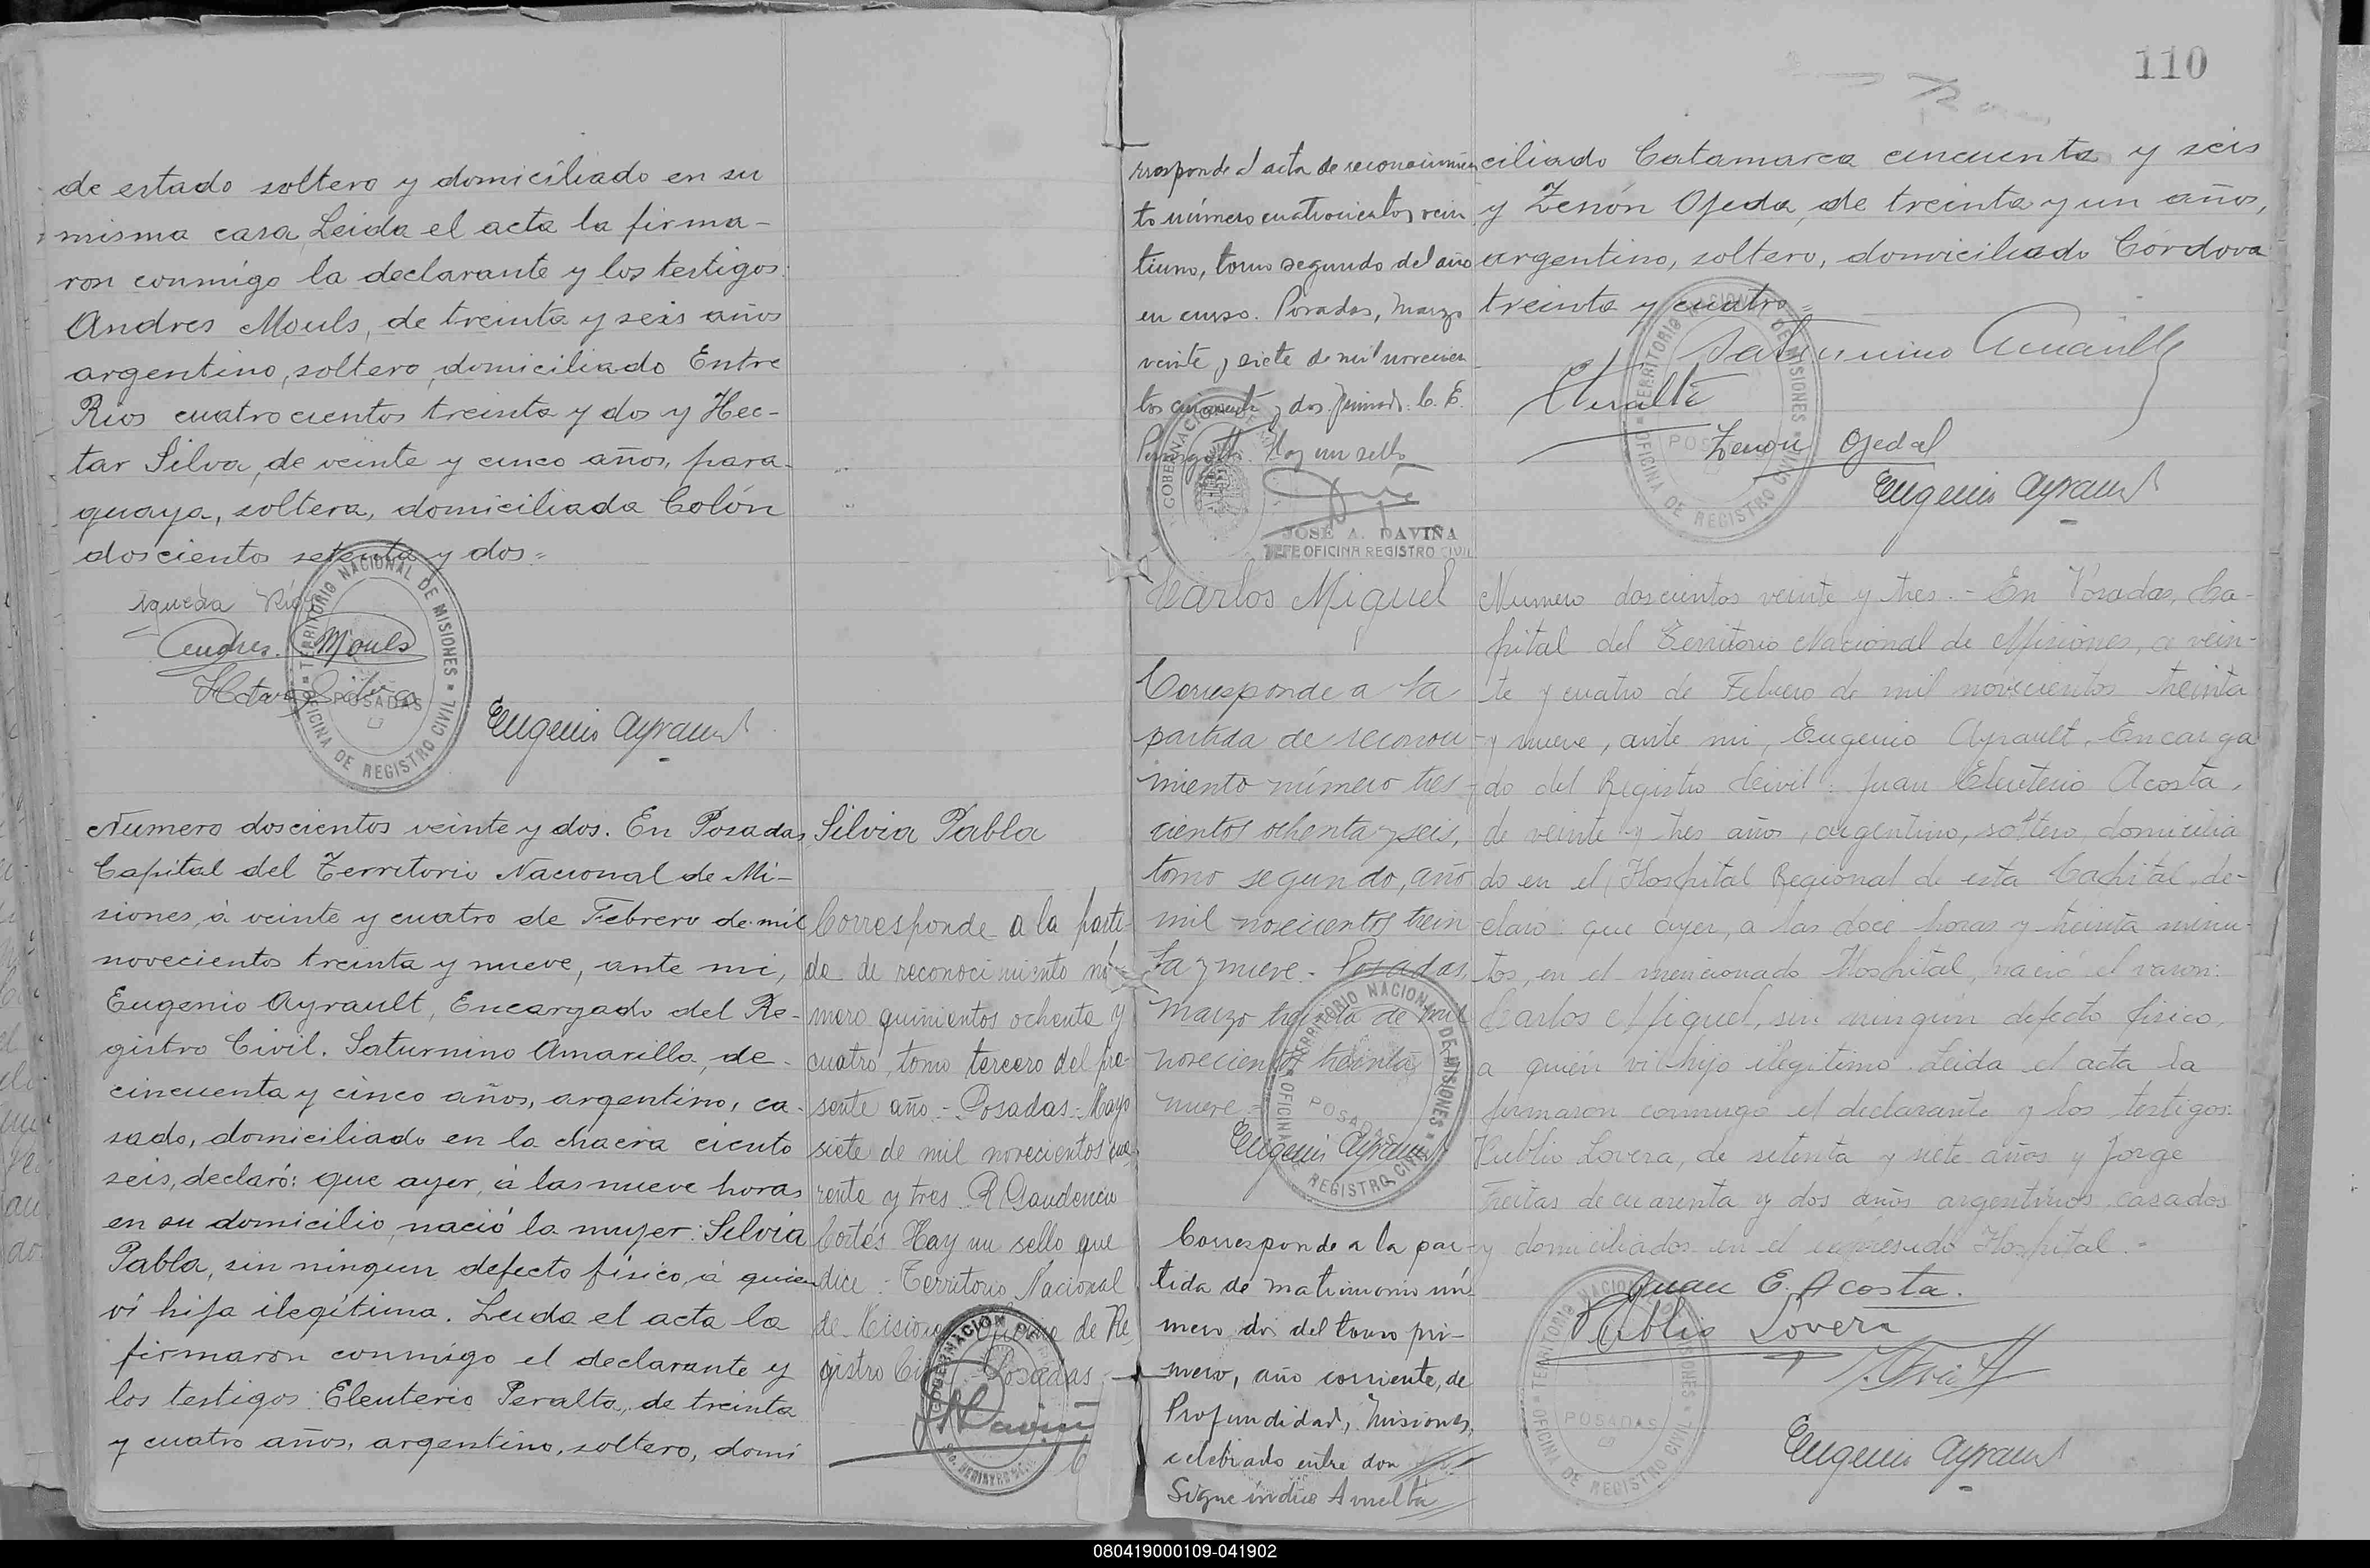 de estado soltero y domiciliado en su
misma casa Leida el acta la firma-
ron conmigo la declarante y los testigos:
Andres Mouls, de treinta y seis años
argentino, soltero, domiciliado Entre
Rios cuatrocientos treinta y dos y Hec-
tar Silva, de veinte y cinco años, para-
guaya, soltera, domiciliada Colón
doscientos setenta y dos=
Agueda
Andres Mouls
Silva
TERRITORIO NACIONAL DE MISIONES
POSADAS
OFICINA DE REGISTRO CIVIL
Eugenio Ayrault
Numero doscientos veinte y dos. En Posadas
Capital del Territorio Nacional de Mi-
siones, á veinte y cuatro de Febrero de mil
novecientos treinta y nueve, ante mi,
Eugenio Ayrault, Encargado del Re-
gistro Civil. Saturnino Amarilla, de
cincuenta y cinco años, argentino, ca-
sado, domiciliado en la chacra ciento
seis, declaró: que ayer, á las nueve horas
en su domicilio, nació la mujer: Silvia
Pabla, sin ningun defecto físico, á quien
ví hija ilegítima. Leida el acta la
firmaron conmigo el declarante y
los testigos: Eleuterio Peralta, de treinta
y cuatro años, argentino, soltero, domi
Silvia Pabla
Corresponde a la parti-
da de reconocimiento nú-
mero quinientos ochenta y
cuatro, tomo tercero del pre-
sente año.- Posadas.- Mayo
siete de mil novecientos cua-
renta y tres. R. Gaudencio
Cortés Hay un sello que
dice.- Territorio Nacional
de Misiones Oficina de Re
gistro Civil Posadas.-
GOBERNACION DE
110
rresponde al acta de reconocimien
to número cuatrocientos vein
tiuno, tomo segundo del año
en curso. Posadas, Marzo
veinte y siete de mil novecien
tos cincuenta y dos. Firmado: C. E.
Hay un sello
GOBERNACION
JOSÉ A. DAVIÑA
JEFE OFICINA REGISTRO CIVIL
ciliado Catamarca cincuenta y seis
y Zenón Ojeda, de treinta y un años,
argentino, soltero, domiciliado Córdova
treinta y cuatro=
Saturnino Amarilla
EPeralta
Zenon Ojeda
TERRITORIO NACIONAL DE MISIONES
POSADAS
OFICINA DE REGISTRO CIVIL
Eugenio Ayrault
Carlos Miguel
Corresponde a la
partida de reconoci-
miento número tres-
cientos ochenta y seis,
tomo segundo, año
mil novecientos trein-
ta y nueve.- Posadas,
Marzo treinta de mil
novecientos treinta
nueve.-
Eugenio Ayrault
TERRITORIO NACIONAL DE MISIONES
POSADAS
OFICINA DE REGISTRO CIVIL
Corresponde a la par-
tida de matrimonio nú
mero dos del tomo pri-
mero, año corriente, de
Profundidad, Misiones,
celebrado entre don
Sigue índice A vuelta
Numero doscientos veinte y tres.- En Posadas, Ca-
pital del Territorio Nacional de Misiones, a vein-
te y cuatro de Febrero de mil novecientos treinta
y nueve, ante mi, Eugenio Ayrault, Encarga
do del Registro Civil: Juan Eluterio Acosta,
de veinte y tres años, argentino, soltero, domicilia
do en el Hospital Regional de esta Capital, de-
claró: que ayer, a las doce horas y treinta minu-
tos, en el mencionado Hospital, nació el varon:
Carlos Miguel, sin ningún defecto físico,
a quién vi hijo ilegitimo. Leida el acta la
firmaron conmigo el declarante y los testigos:
Publio Lovera, de setenta y siete años y Jorge
Freitas de cuarenta y dos años argentinos, casados
y domiciliados en el expresado Hospital.-
Juan E. Acosta.
Publio Lovera
TERRITORIO NACIONAL DE MISIONES
POSADAS
OFICINA DE REGISTRO CIVIL
Eugenio Ayrault
080419000109-041902